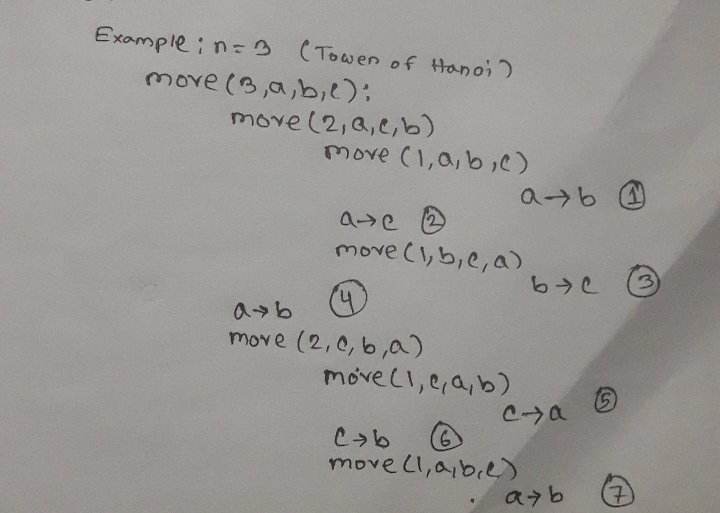 Example: n=3 (Tower of Hanoi)
move(3,a,b,c):
move(2,a,c,b)
move(1,a,b,c)
a→b ①
a→c ②
move(1,b,c,a)
b→c ③
a→b ④
move(2,c,b,a)
move(1,c,a,b)
c→a ⑤
c→b ⑥
move(1,a,b,c)
a→b ⑦